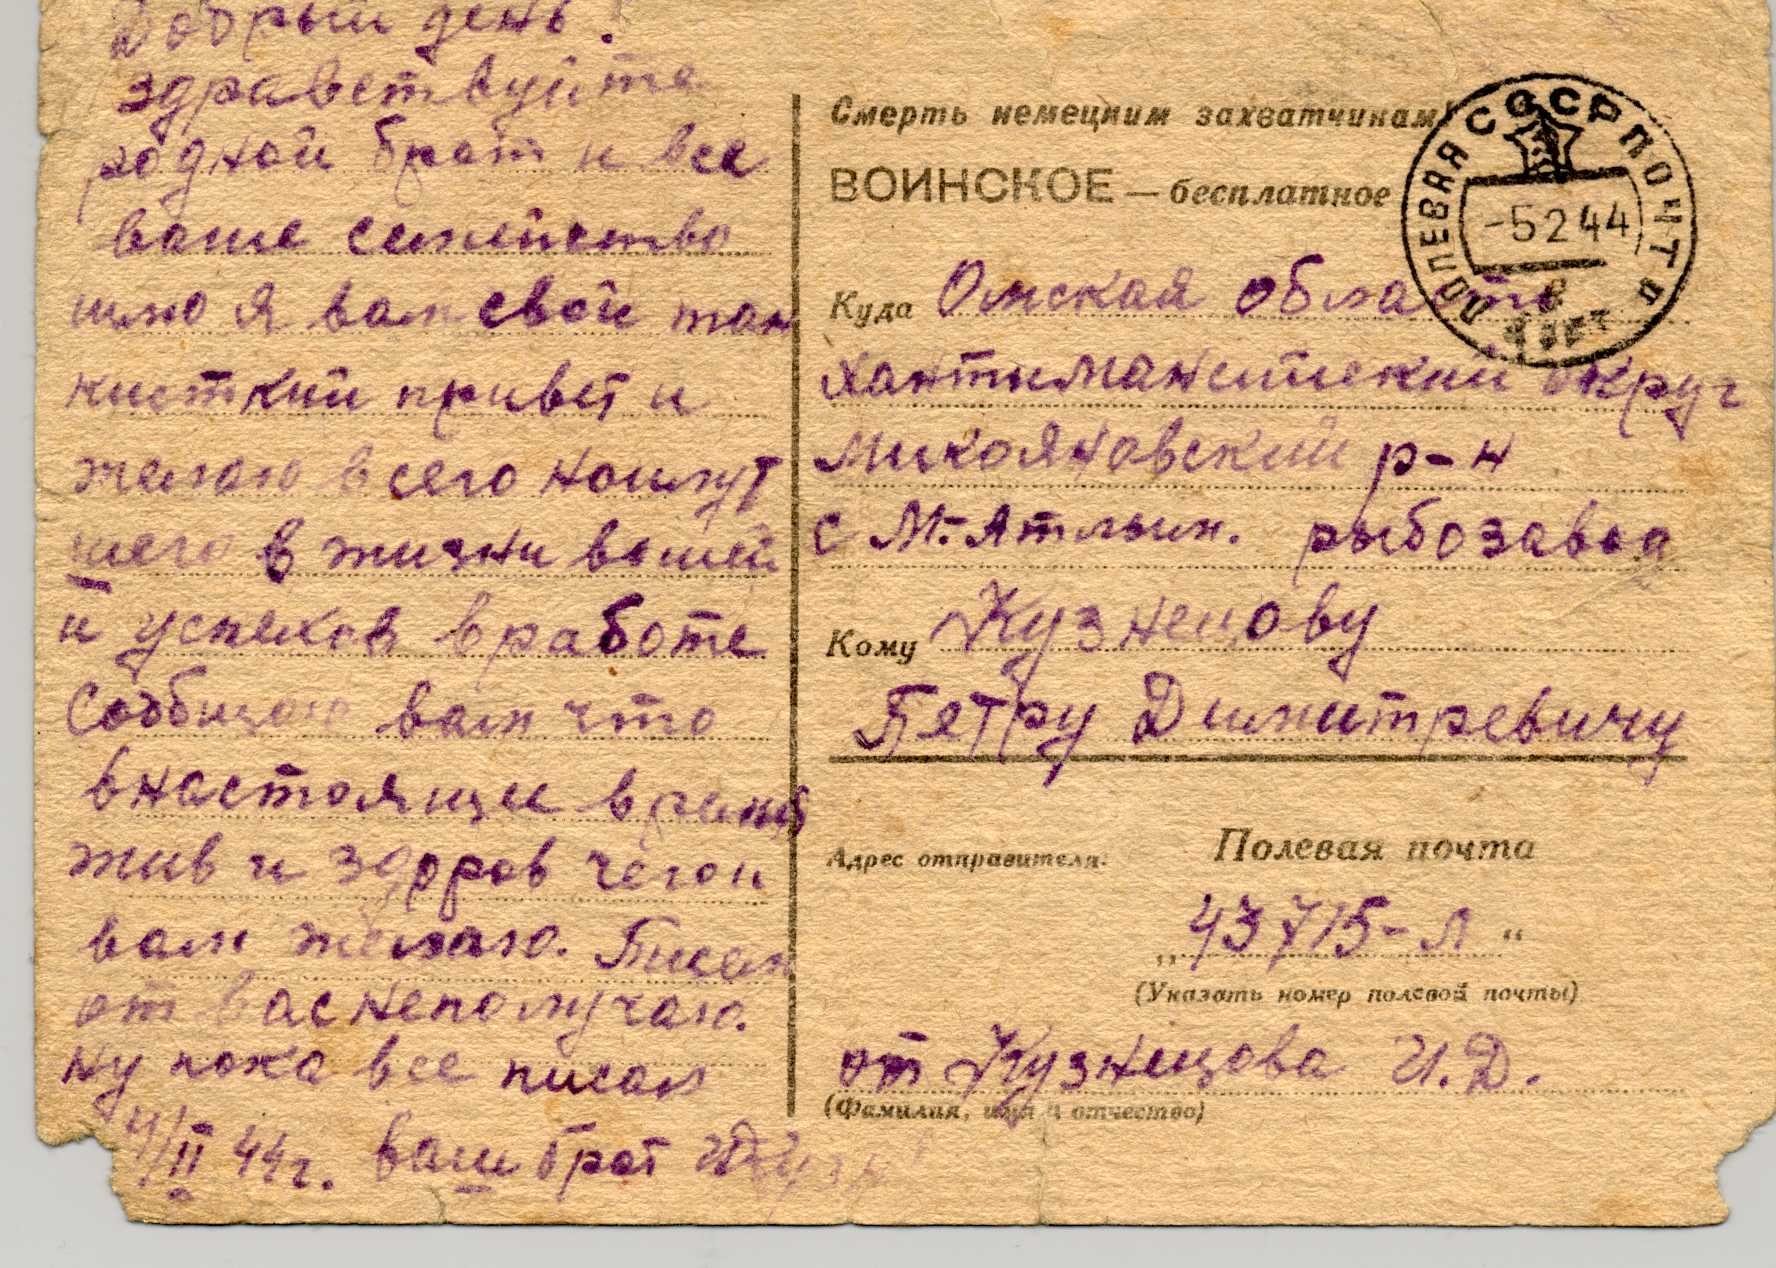 Добрый день!
здравствуйте
родной брат и все
ваше семейство
шлю я вам свой тан
кисткий привет и
желаю всего наилут
шего в жизни вашей
и успехов в работе
Сообщаю вам что
внастоящее время
жив и здоров чегои
вам желаю. Писем
от васнеполучаю.
ну пока все писал
4/II 44г. ваш брат
Смерть немецким захватчикам!
ВОИНСКОЕ — бесплатное
ПОЛЕВАЯ СССР ПОЧТА
-5 2 44
Куда Омская область
хантымансийский округ
Микояновский р-н
с М.-Атлым. рыбозавод
Кому Кузнецову
Петру Димитревичу
Адрес отправителя:
Полевая почта
„43715-л“
(Указать номер полевой почты)
от Кузнецова И.Д.
(Фамилия, имя и отчество)